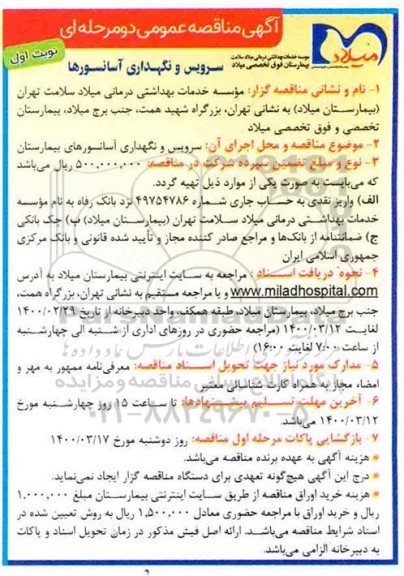 آگهی مناقصه عمومی دو مرحله ای
نوبت اول
میلاد
موسسه خدمات بهداشتی درمانی میلاد سلامت
بیمارستان فوق تخصصی میلاد
سرویس و نگهداری آسانسورها
۱- نام و نشانی مناقصه گزار: مؤسسه خدمات بهداشتی درمانی میلاد سلامت تهران
(بیمارستان میلاد) به نشانی تهران، بزرگراه شهید همت، جنب برج میلاد، بیمارستان
تخصصی و فوق تخصصی میلاد
۲- موضوع مناقصه و محل اجرای آن: سرویس و نگهداری آسانسورهای بیمارستان
۳- نوع و مبلغ تضمین سپرده شرکت در مناقصه: ۵۰۰,۰۰۰,۰۰۰ ریال می‌باشد
که می‌بایست به صورت یکی از موارد ذیل تهیه گردد.
الف) واریز نقدی به حساب جاری شماره ۴۹۷۵۴۷۸۶ نزد بانک رفاه به نام مؤسسه
خدمات بهداشتی درمانی میلاد سلامت تهران (بیمارستان میلاد) ب) چک بانکی
ج) ضمانتنامه از بانک‌ها و مراجع صادر کننده مجاز و تأیید شده قانونی و بانک مرکزی
جمهوری اسلامی ایران
۴- نحوه دریافت اسناد: مراجعه به سایت اینترنتی بیمارستان میلاد به آدرس
www.miladhospital.com و یا مراجعه مستقیم به نشانی تهران، بزرگراه همت،
جنب برج میلاد، بیمارستان میلاد، طبقه همکف، واحد دبیرخانه از تاریخ ۱۴۰۰/۰۲/۲۹
لغایت ۱۴۰۰/۰۳/۱۲ (مراجعه حضوری در روزهای اداری از شنبه الی چهارشنبه
از ساعت ۷:۰۰ لغایت ۱۶:۰۰)
۵- مدارک مورد نیاز جهت تحویل اسناد مناقصه: معرفی‌نامه ممهور به مهر و
امضاء مجاز به همراه کارت شناسایی معتبر
۶- آخرین مهلت تسلیم پیشنهادها: تا ساعت ۱۵ روز چهارشنبه مورخ
۱۴۰۰/۰۳/۱۲ می‌باشد.
۷- بازگشایی پاکات مرحله اول مناقصه: روز دوشنبه مورخ ۱۴۰۰/۰۳/۱۷
• هزینه آگهی به عهده برنده مناقصه می‌باشد.
• درج این آگهی هیچ‌گونه تعهدی برای دستگاه مناقصه گزار ایجاد نمی‌نماید.
• هزینه خرید اوراق مناقصه از طریق سایت اینترنتی بیمارستان مبلغ ۱,۰۰۰,۰۰۰
ریال و خرید اوراق با مراجعه حضوری معادل ۱,۵۰۰,۰۰۰ ریال به روش تعیین شده در
اسناد شرایط مناقصه می‌باشد. ارائه اصل فیش مذکور در زمان تحویل اسناد و پاکات
به دبیرخانه الزامی می‌باشد.